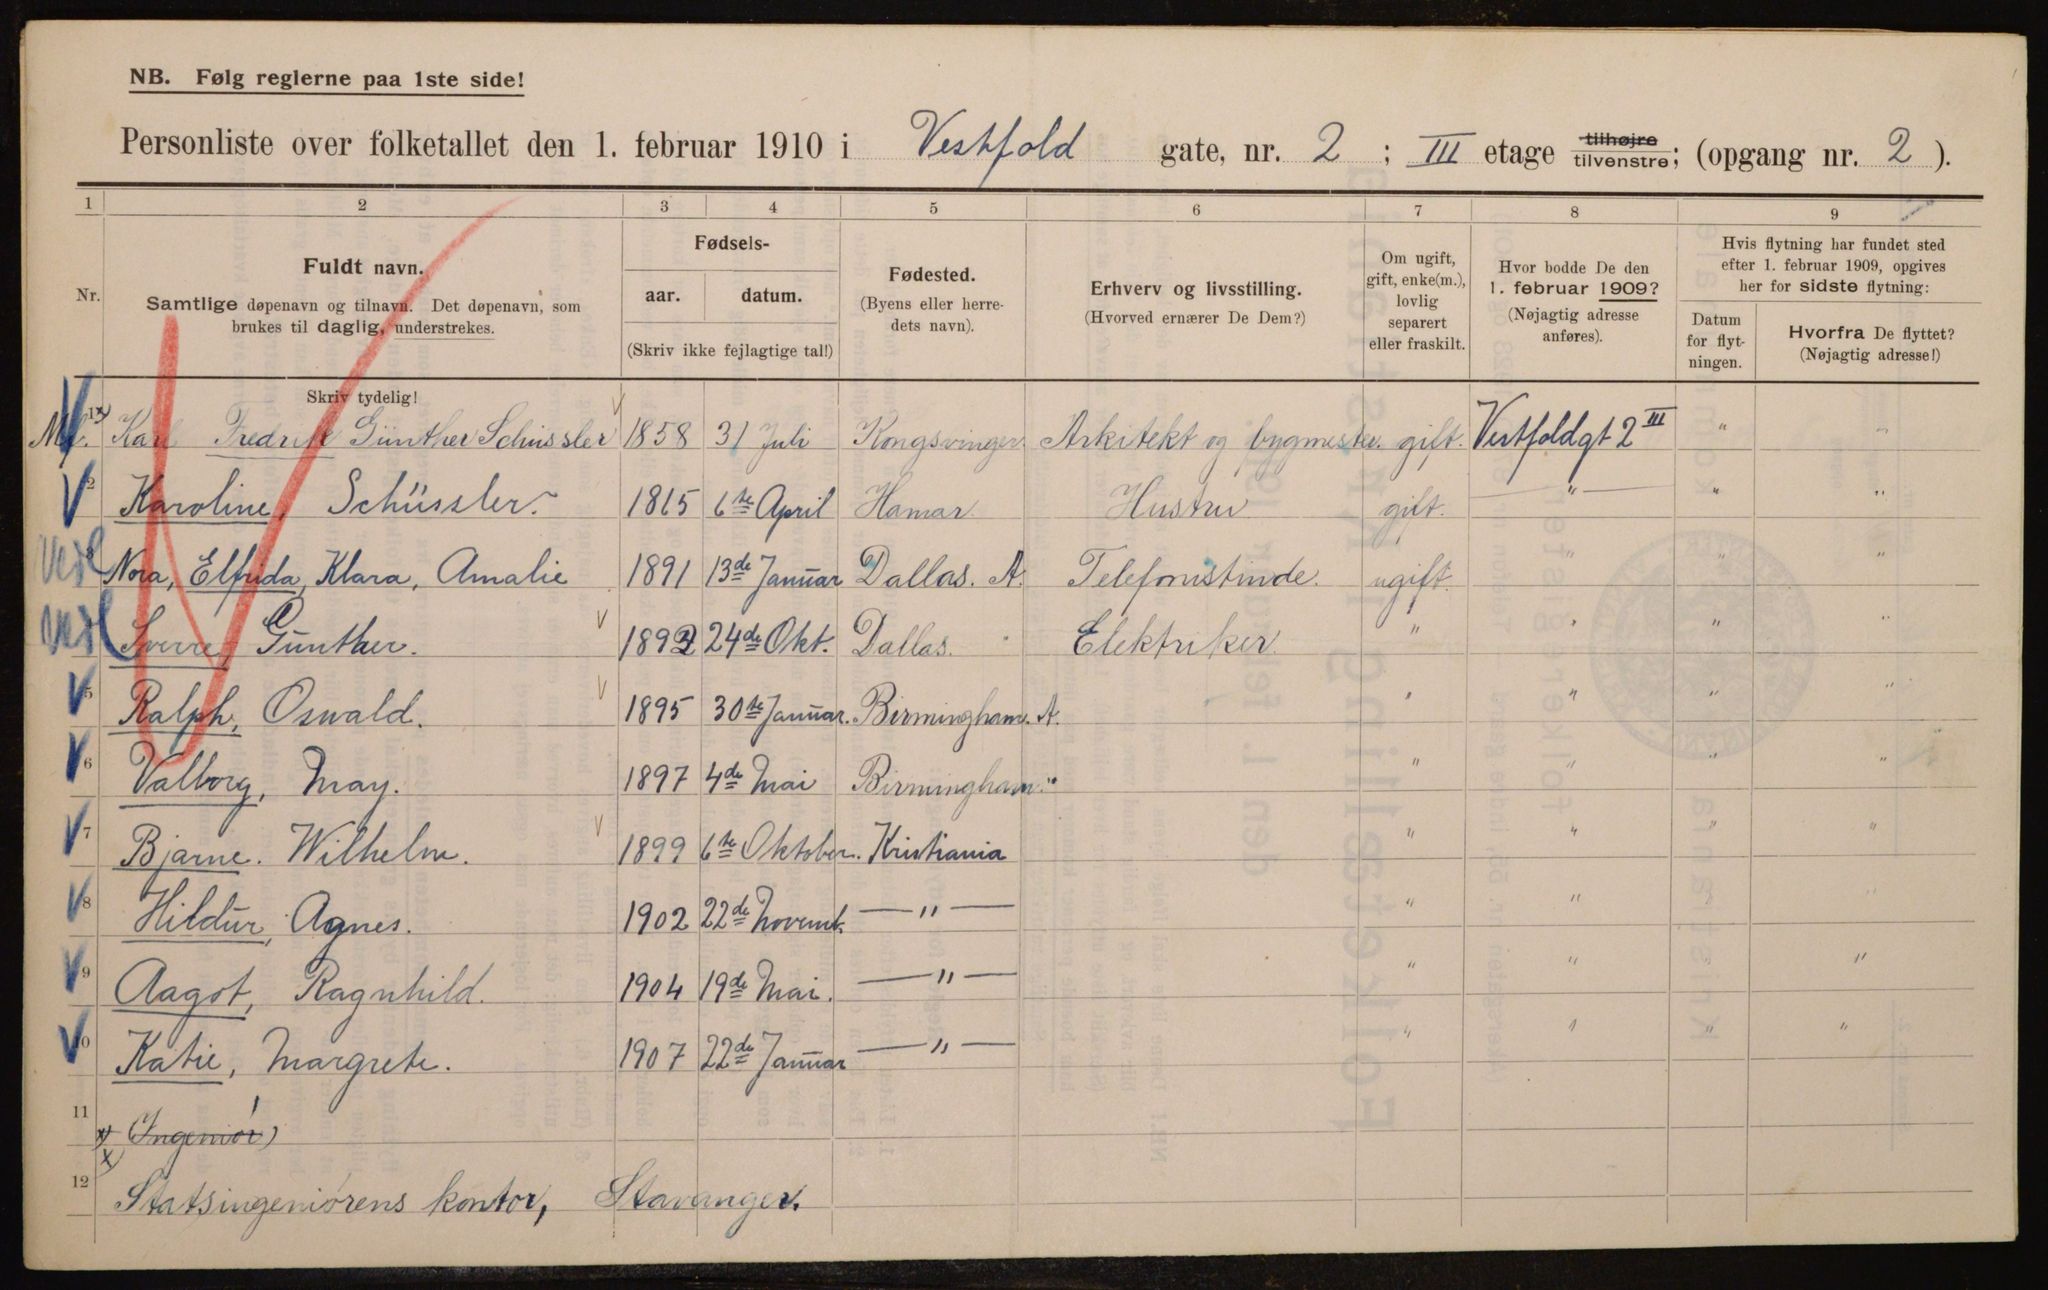 NB. Følg reglerne paa 1ste side!
Personliste over folketallet den 1. februar 1910 i Vestfold gate, nr. 2 ; III etage tilhøjre tilvenstre; (opgang nr. 2 ).
1 2 3 4 5 6 7 8 9
Nr.
Fuldt navn.
Samtlige døpenavn og tilnavn. Det døpenavn, som
brukes til daglig, understrekes.
Skriv tydelig!
Fødsels-
aar. datum.
(Skriv ikke fejlagtige tal!)
Fødested.
(Byens eller herre-
dets navn).
Erhverv og livsstilling.
(Hvorved ernærer De Dem?)
Om ugift,
gift, enke(m.),
lovlig
separert
eller fraskilt.
Hvor bodde De den
1. februar 1909?
(Nøjagtig adresse
anføres).
Hvis flytning har fundet sted
efter 1. februar 1909, opgives
her for sidste flytning:
Datum
for flyt-
ningen.
Hvorfra De flyttet?
(Nøjagtig adresse!)
1 x) Karl Fredrik Günther Schüssler 1858 31 Juli Kongsvinger Arkitekt og bygmester. gift. Vestfoldgt 2 III " "
2 Karoline, Schüssler. 1865 6te April Hamar Hustru gift. " " "
3 Nora, Elfrida, Klara, Amalie 1891 13de Januar Dallas. A. Telefonistinde. ugift. " " "
Sverre, Günther. 1892 24de Okt. Dallas. Elektriker. " " " "
5 Ralph, Oswald. 1895 30te Januar. Birmingham. A. " " " "
6 Valborg, May. 1897 4de Mai Birmingham " " " " "
7 Bjarne. Wilhelm. 1899 6te Oktober. Kristiania " " " "
8 Hildur, Agnes. 1902 22de Novemb. — " — " " "
9 Aagot, Ragnhild. 1904 19de Mai. — " — " " " "
10 Katie, Margrete. 1907 22de Januar — " — " " " "
11
x) (Ingeniør)
x)
12 Statsingeniørens kontor, Stavanger.